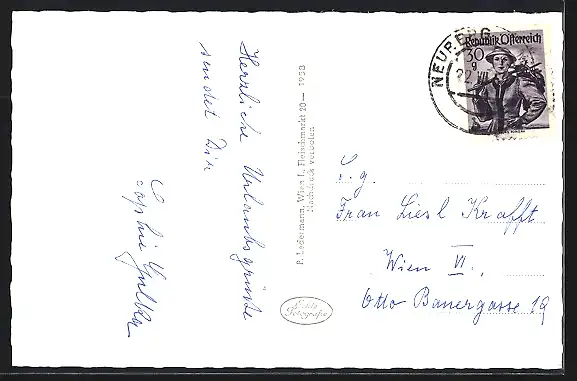 Herzliche Urlaubsgrüße
sendet Dir
Sophie
P. Ledermann, Wien I., Fleischmarkt 20 — 1958
Nachdruck verboten
Echte
Fotografie
NEUP.BERG
22.VII
Republik Österreich
30
g
S.g.
Frau Liesl Krafft
Wien VI.,
Otto Bauergasse 19